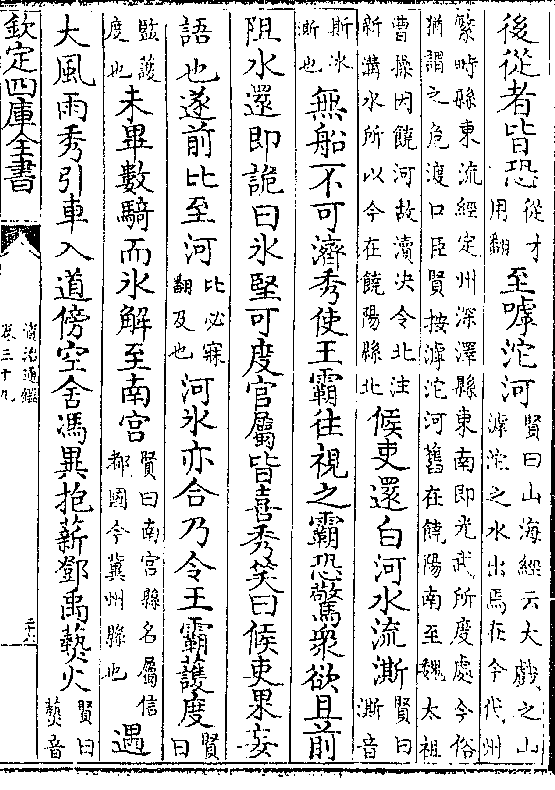 後從者皆恐從才用翻至嘑沱河賢曰山海經云大戲之山滹沱之水出焉在今代州
繁畤縣東流經定州深澤縣東南即光武所度處今俗猶謂之危渡口臣賢按滹沱河舊在饒陽南至魏太祖
曹操因饒河故瀆决令北注新溝水所以今在饒陽縣北候吏還白河水流澌賢曰澌音
斯冰澌也無船不可濟秀使王霸往視之霸恐驚衆欲且前
阻水還即詭曰氷堅可度官屬皆喜秀笑曰候吏果妄
語也遂前比至河比必寐翻及也河氷亦合乃令王霸䕶度賢曰
監䕶度也未畢數騎而氷解至南宫賢曰南宫縣名屬信都國今冀州縣也遇
大風雨秀引車入道傍空舍馮異抱薪鄧禹爇火賢曰爇音
欽定四庫全書
資治通鑑
卷三十九